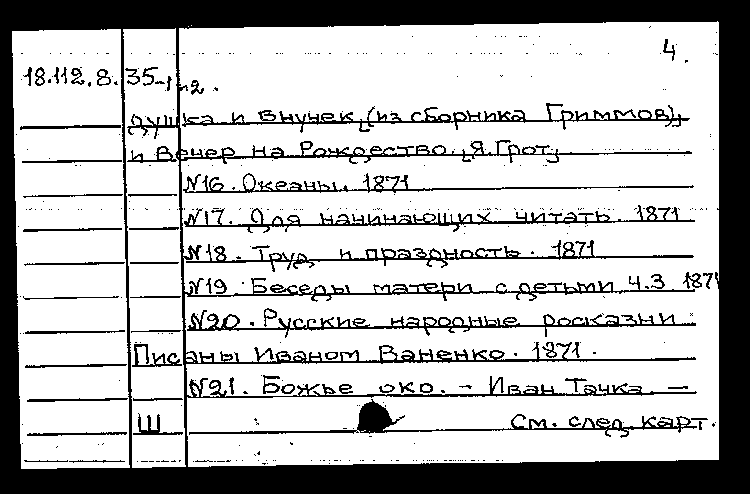 4.
18.112.8.35-1,2.
душка и внучек (из сборника Гриммов),
и Вечер на Рождество. Я. Грот,
№16. Океаны. 1871
№17. Для начинающих читать. 1871
№18. Труд и праздность. 1871
№19. Беседы матери с детьми ч.3 1871
№20. Русские народные росказни
Писаны Иваном Ваненко. 1871.
№21. Божье око. - Иван Тачка. -
Ш См. след. карт.